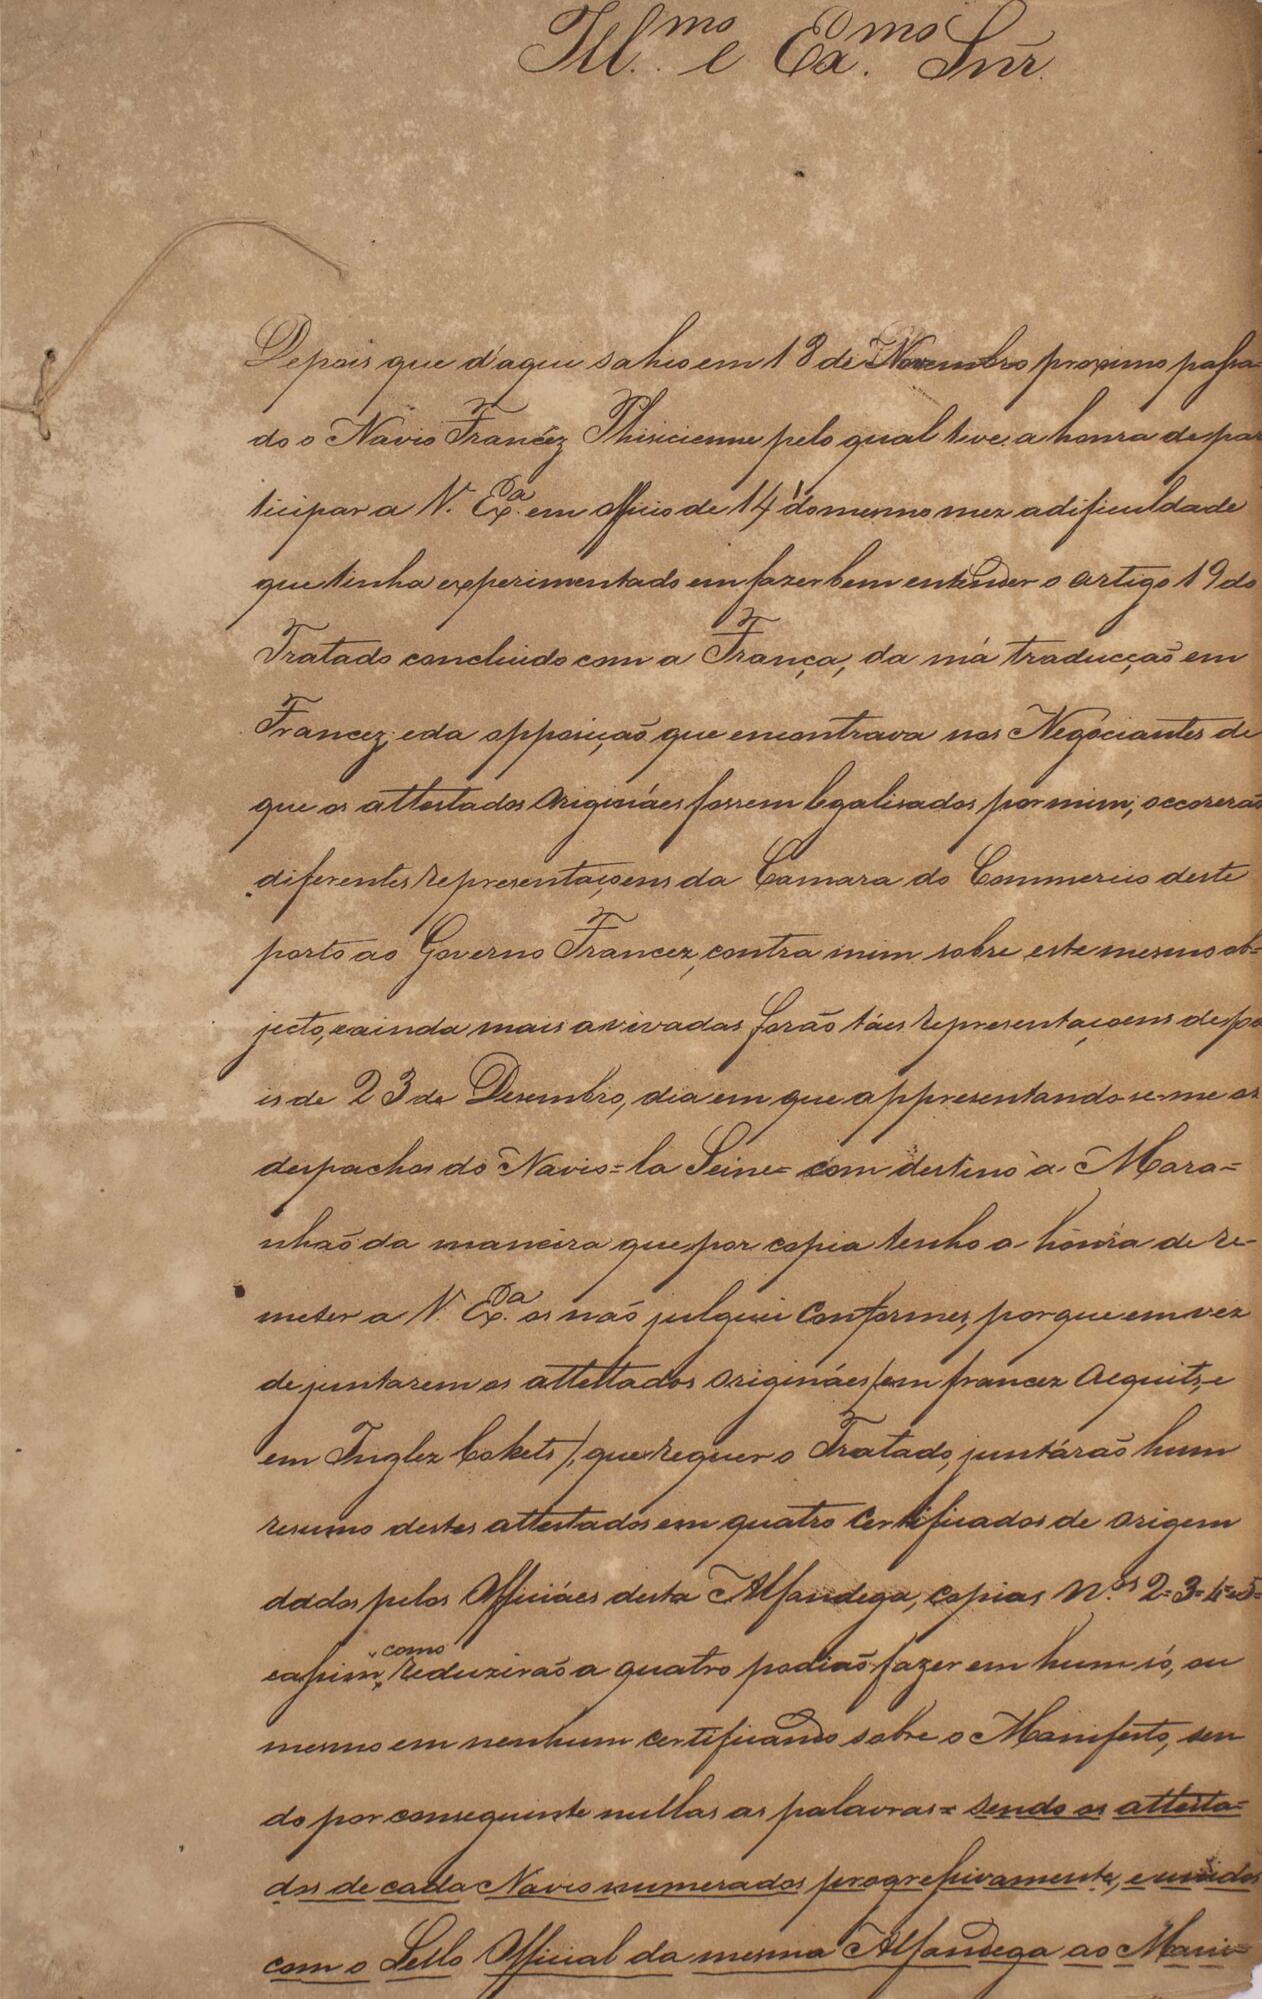 Ill.mo e Ex.mo Snr.
Depois que d'aqui sahio em 18 de Novembro proximo passa-
do o Navio Francêz Phisicienne pelo qual tive a honra de par
ticipar a V. Ex.a em officio de 14 do mesmo mez a dificuldade
que tinha experimentado em fazer bem entender o artigo 19 do
Tratado concluido com a França, da má traducção em
Francez, e da opposição que encontrava nos Negociantes de
que os attestados Origináes fossem legalisados por mim, occorerão
diferentes representaçoens da Camara do Commercio deste
porto ao Governo Francez, contra mim sobre este mesmo ob=
jecto, e ainda mais avivadas forão táes representaçoens depo
is de 23 de Desembro, dia em que appresentando-se-me os
despachos do Navio = la Seine = com destino a Mara=
nhão da maneira que por copia tenho a honra de re-
meter a V. Ex.a os não julguei Conformes, porque em vez
de juntarem os attestados origináes / em francez Acquits, e
em Inglez Cokets /, que requer o Tratado, juntárão hum
resumo destes attestados em quatro Certificados de origem
dados pelos Officiáes desta Alfandega, copias N.os 2=3=4=5=
e assim, como reduzirão a quatro podião fazer em hum só, ou
mesmo em nenhum certificando sobre o Manifesto, sen
do por conseguinte nullas as palavras = sendo os attesta=
dos de cada Navio numerados progressivamente, e unidos
com o Sello Official da mesma Alfandega ao Mani=